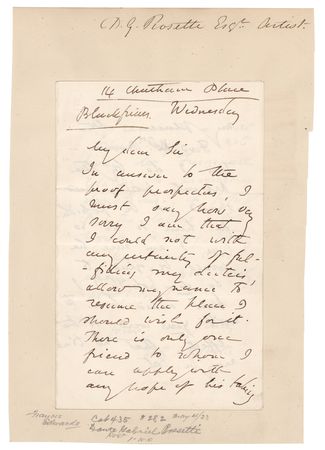 (D. G. Rosette Esqre Artist.
14 Chatham Place
Blackfriars. Wednesday
My dear Sir
In answer to the
proof prospectus, I
must say how very
sorry I am that
I could not with
any certainty of ful-
filling my duties,
allow my name to
resume the place I
should wish for it.
There is only one
friend to whom I
can apply with
any hope of his taking
Francis
Edwards
Cat 435 # 282
Dante Gabriel Rossetti